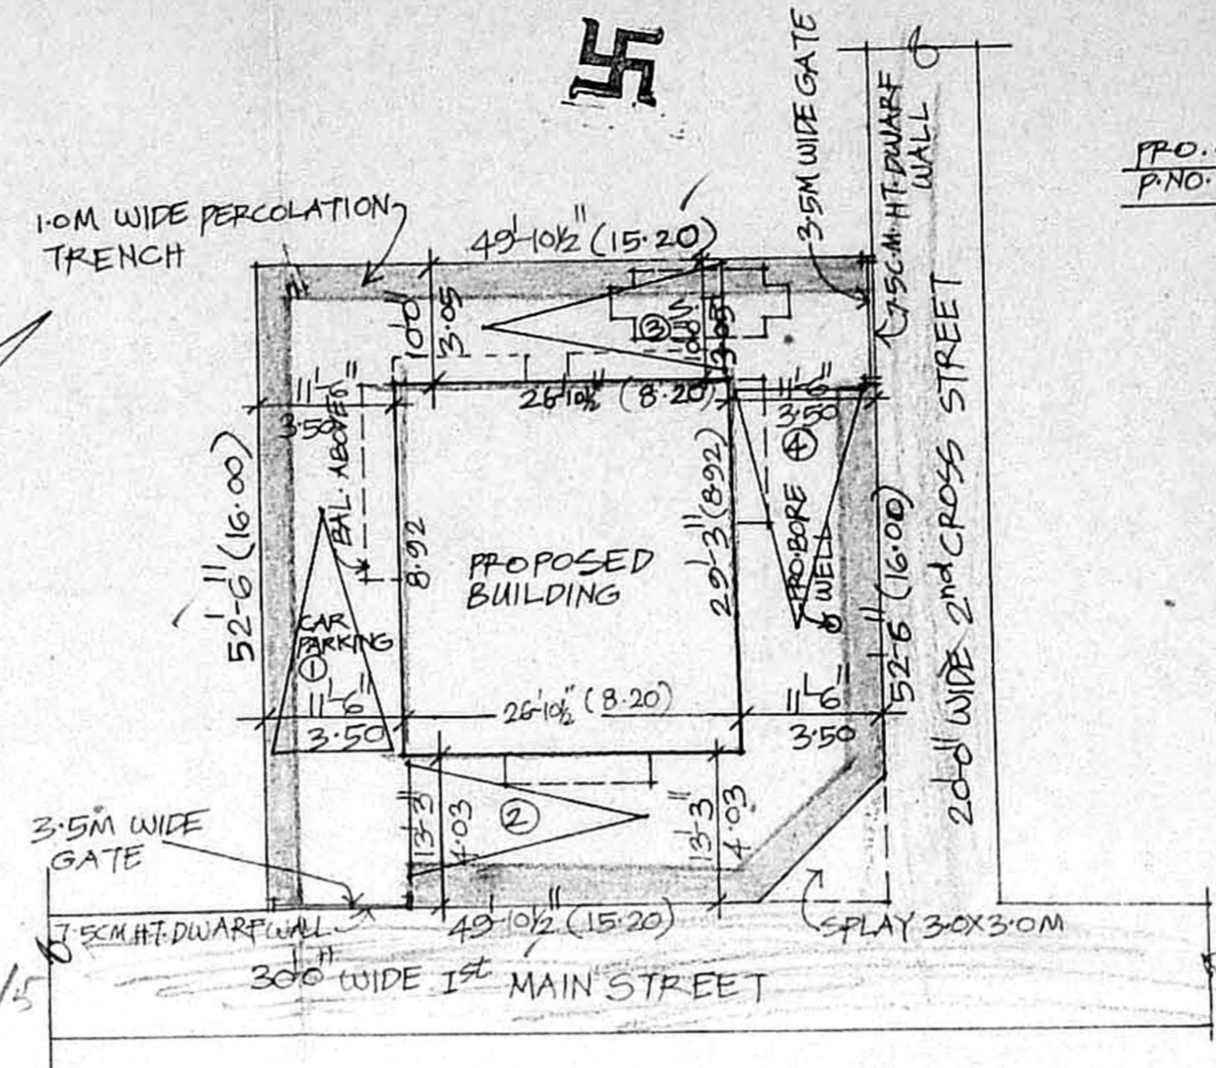 PRO.
P.NO.
1.0M WIDE PERCOLATION
TRENCH
49'-10½" (15.20)
3.5M WIDE GATE
7.5C.M. HT. DWARF
WALL
10'0"
3.05
3
10'0"
3.05
11'-6"
3.50
26'-10½" (8.20)
11'-6"
3.50
BAL. ABOVE
52'-6" (16.00)
8.92
PROPOSED
BUILDING
29'-3" (8.92)
4
PRO.BORE
WELL
52'-6" (16.00)
20'-0" WIDE 2nd CROSS STREET
CAR
PARKING
1
11'-6"
3.50
26'-10½" (8.20)
11'-6"
3.50
3.5M WIDE
GATE
13'-3"
4.03
2
13'-3"
4.03
7.5CM.HT.DWARF WALL
49'-10½" (15.20)
SPLAY 3.0X3.0M
30'0" WIDE Ist MAIN STREET